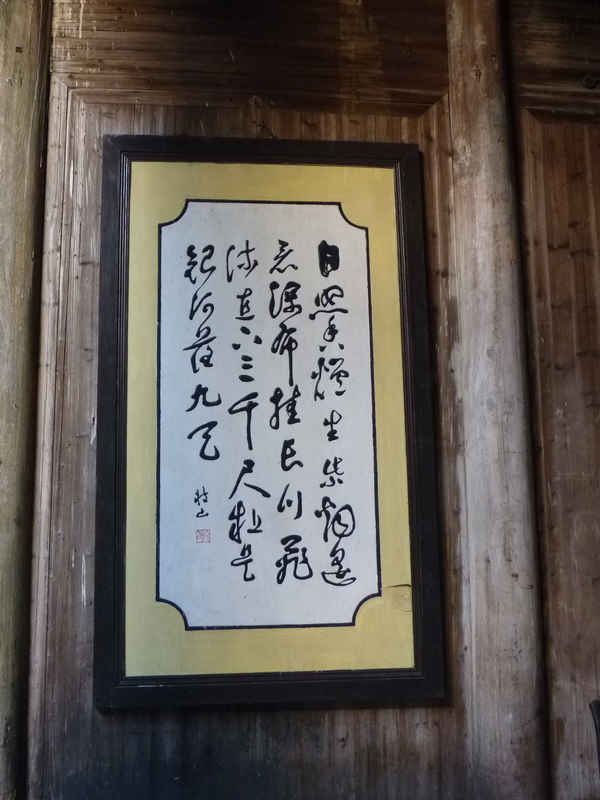 日照香爐生紫烟遥
看瀑布挂长川飛
流直下三千尺疑是
銀河落九天